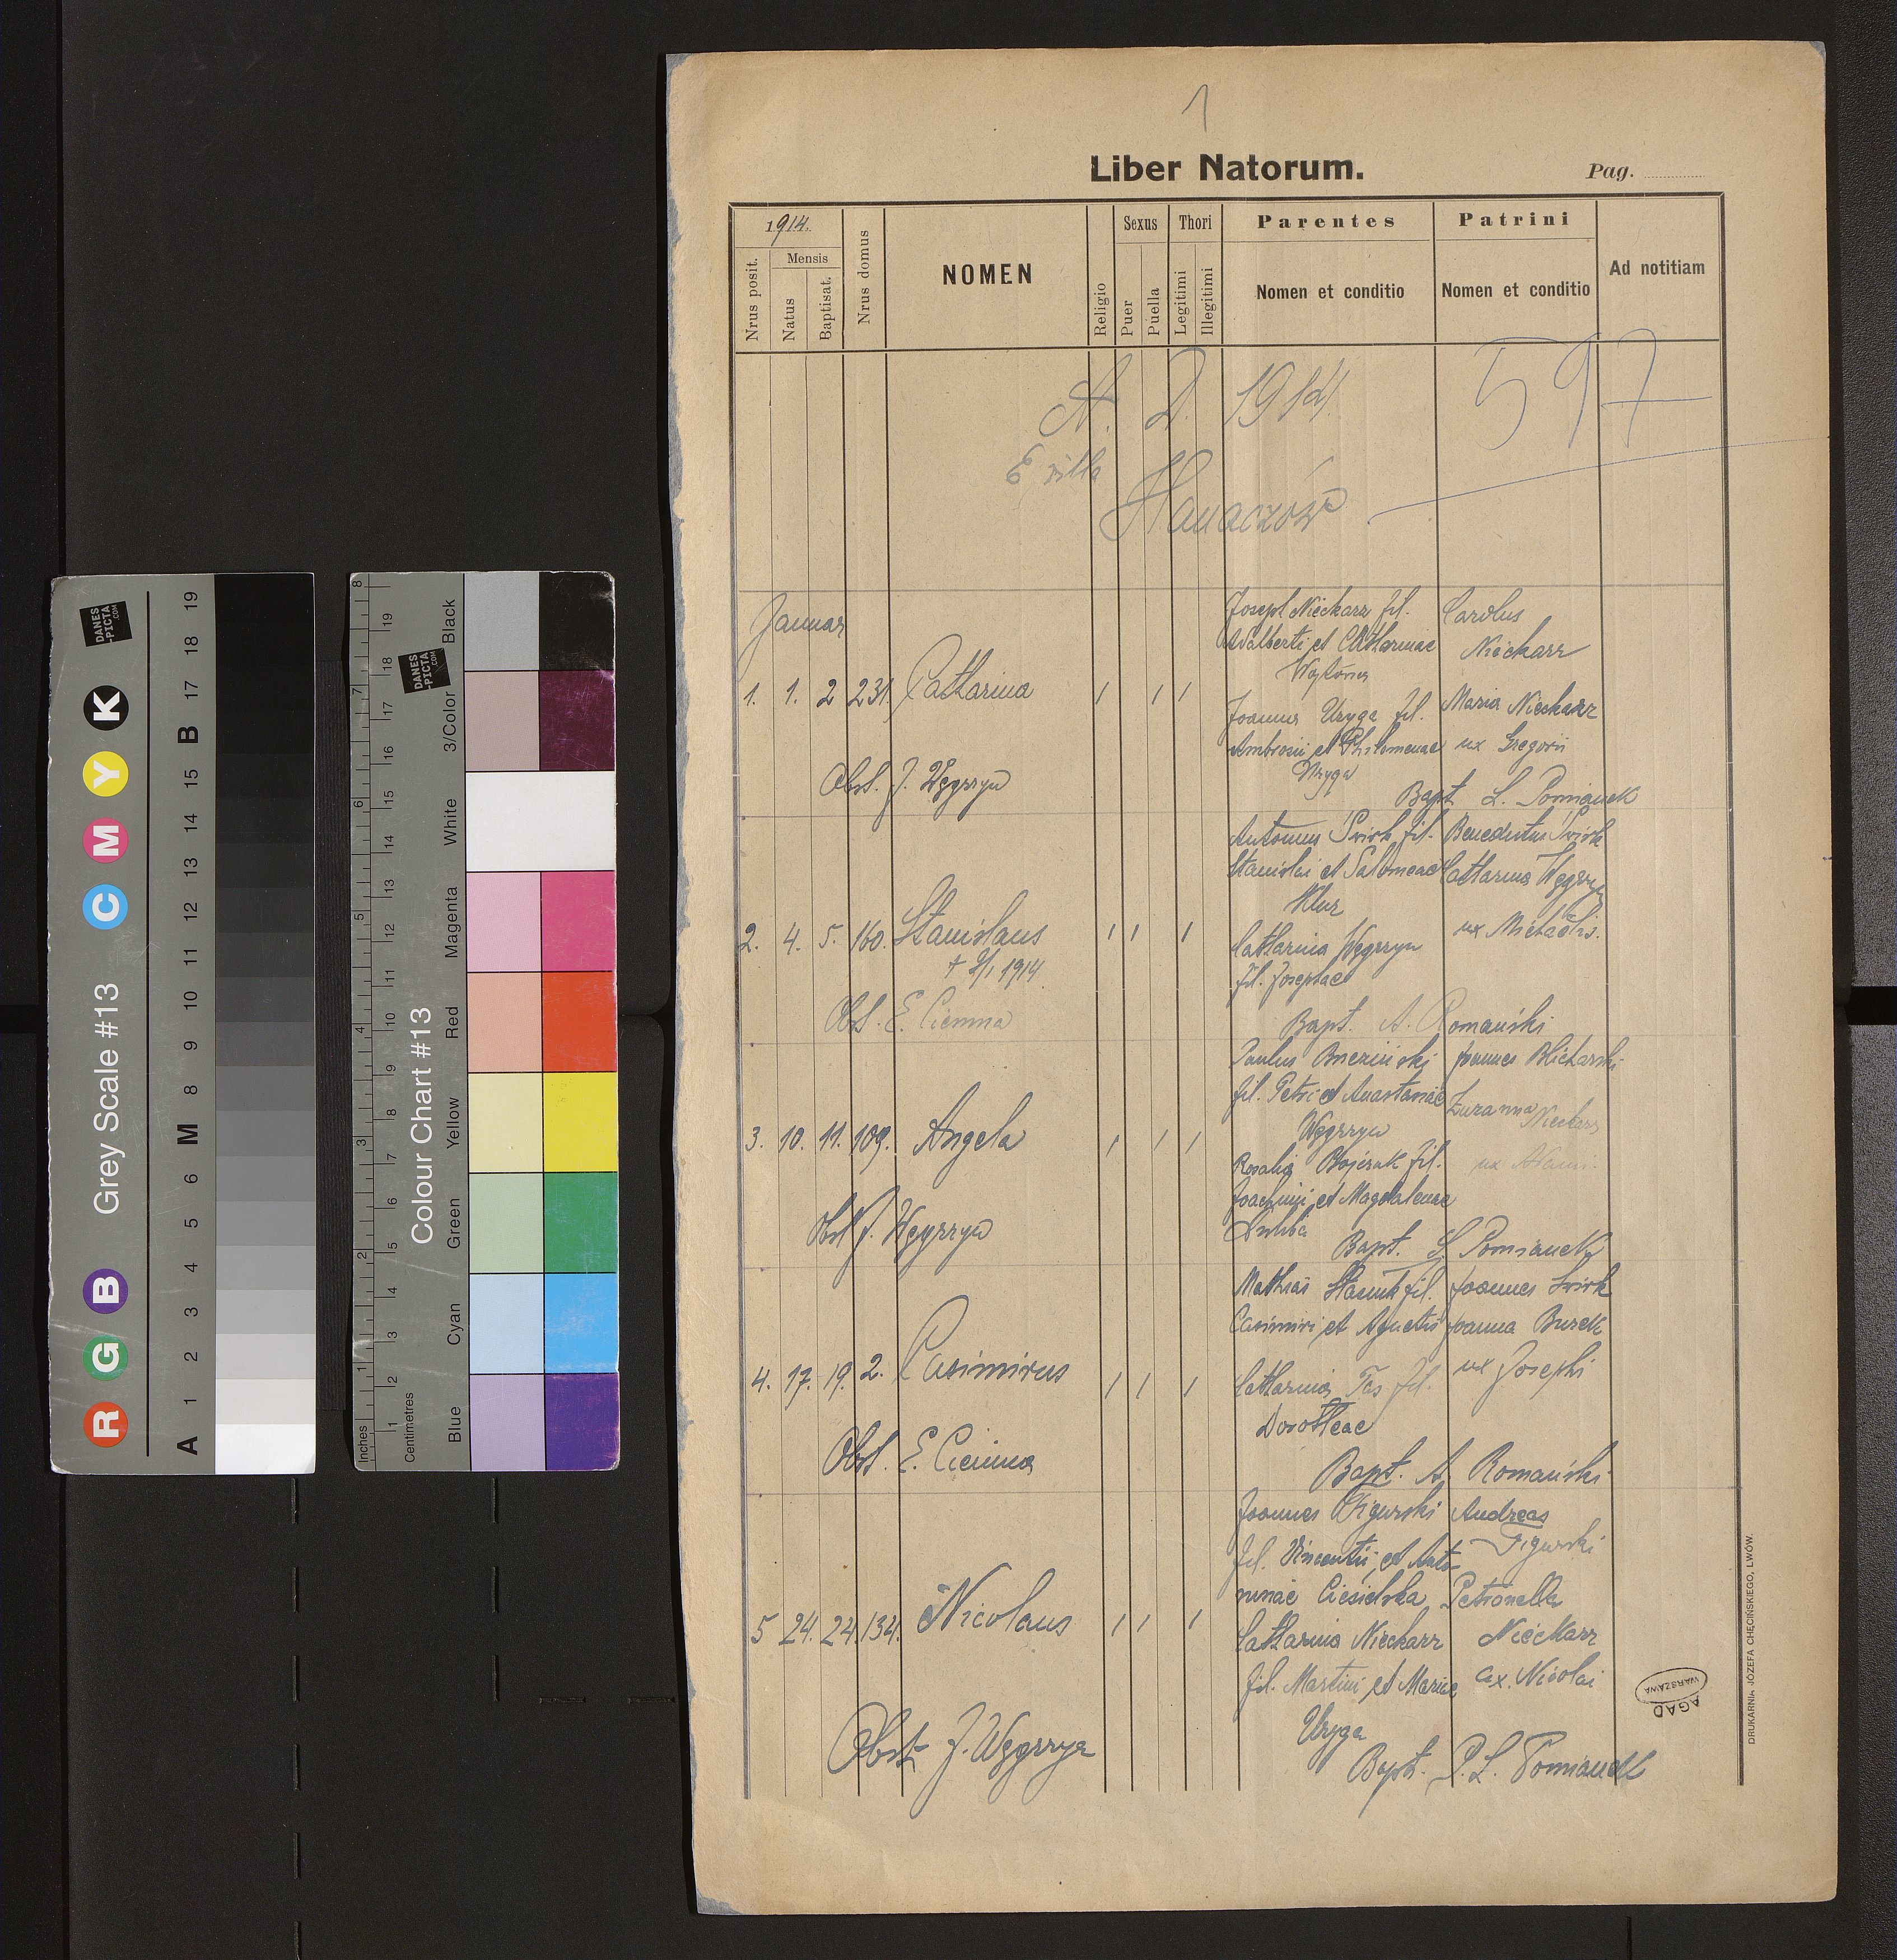 1
Liber Natorum.
Pag.
1914.
Nrus posit.
Mensis
Natus
Baptisat.
Nrus domus
NOMEN
Religio
Sexus
Puer
Puella
Thori
Legitimi
Illegitimi
Parentes
Nomen et conditio
Patrini
Nomen et conditio
Ad notitiam
A. D. 1914
597
E villa
Hanaczów
Januar
1. 1. 2 231. Catharina
Joseph Nieckarz fil.
Adalberti et Catharinae
Joanna Uryga fil.
Ambrosii et Philomenae
Uryga
Carolus
Nieckarz
Maria Nieckarz
ux Gregorii
Obst. J. Węgrzyn
Bapt L. Pomianek
2. 4. 5. 160. Stanislaus
1914
Antonius Świrk fil.
Stanislai et Salomeae
Catharina Węgrzyn
fil. Josephae
Benedictus Świrk
Catharina Węgrzyn
ux Michaelis.
Obst. E. Ciemna
Bapt. A. Romański
3. 10. 11. 109. Angela
Paulus Brzeziński
fil. Petri et Anastasiae
Węgrzyn
Rosalia fil.
Joachimi et Magdalenae
Joannes Blicharski
Zuzanna Nieckarz
ux
Obst J. Węgrzyn
Bapt. L Pomianek
4. 17. 19. 2. Casimirus
Mathias fil.
Casimiri et Agnetis
Catharina Tas fil.
Dorotheae
Joannes Świrk
Joanna Burek
ux Josephi
Obst. E. Ciemna
Bapt. A. Romański
5 24. 24. 134. Nicolaus
Joannes Figurski
fil. Vincentii et Anto-
ninae Ciesielska
Catharina Nieckarz
fil. Martini et Mariae
Uryga
Andreas
Figurski
Petronella
Nieckarz
ux. Nicolai
Obst. J. Węgrzyn
Bapt. P. L. Pomianek
AGAD
WARSZAWA
DRUKARNIA JÓZEFA CHĘCIŃSKIEGO, LWÓW.
DANES
-PICTA
.COM
Grey Scale #13
R G B C M Y K
A 1 2 3 4 5 6 M 8 9 10 11 12 13 14 15 B 17 18 19
DANES
-PICTA
.COM
Colour Chart #13
Blue Cyan Green Yellow Red Magenta White 3/Color Black
Inches 1 2 3 4 5 6 7 8
Centimetres 1 2 3 4 5 6 7 8 9 10 11 12 13 14 15 17 18 19